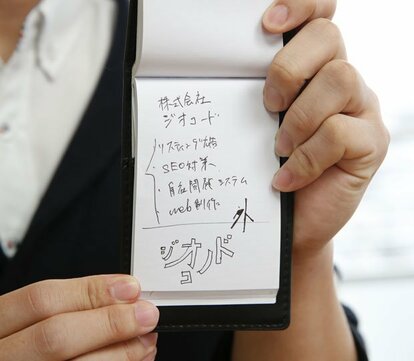 株式会社
ジオコード
リスティング広告
・SEO対策
・自社開発システム
・web制作
外
ジオコード